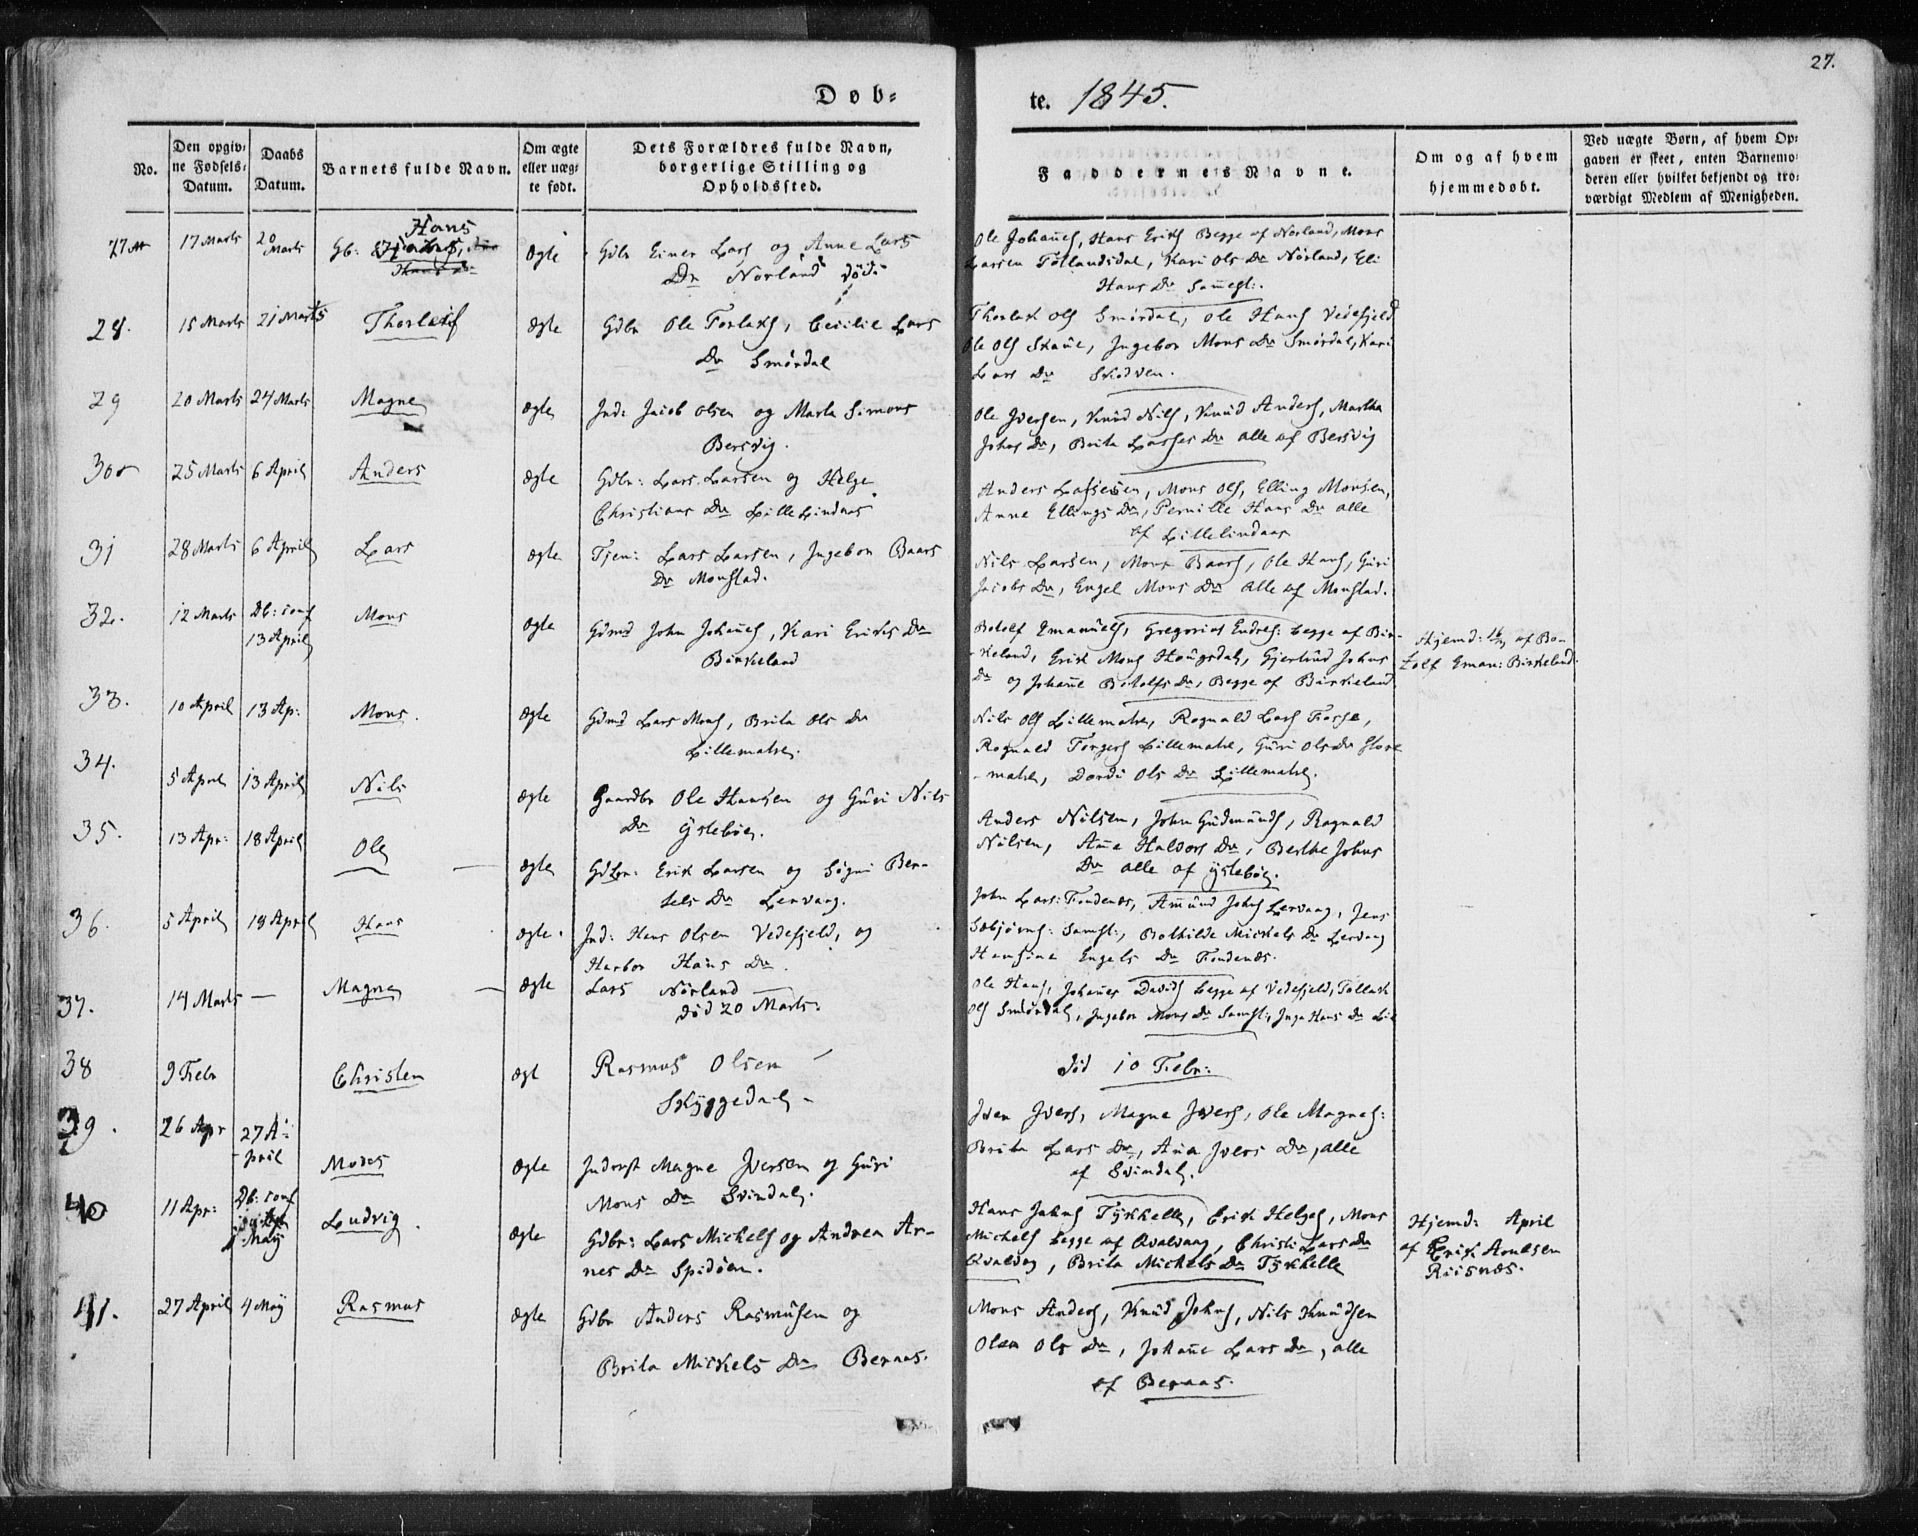 27.
Døb=
te. 1845.
No.
Den opgiv=
ne Fødsels=
Datum.
Daabs
Datum.
Barnets fulde Navn.
Om ægte
eller uæg=
te født.
Dets Forældres fulde Navn,
borgerlige Stilling og
Opholdssted.
Faddernes Navne.
Om og af hvem
hjemmedøbt.
Ved uægte Børn, af hvem Op=
gaven er skeet, enten Barnemo=
deren eller hvilket bekjendt og tro=
værdigt Medlem af Menigheden.
27 17 Marts 20 Marts Hans Ægte
Gdbr Einer Lars og Anne Lars
Dr Norland
Ole Johannes, Hans Eriks Begge af Norland, Mons
Larsen Totlandsdal, Kari Ols Dr Nörland, Eli
Hans Dr Samest:.
28. 15 Marts 21 Marts Thorleif Ægte
Gdbr Ole Torlaks, Cecilie Lars
Dr Smördal
Thorlak Ols Smördal, Ole Hans Vedefjeld
Ole Ols Skaue, Ingebor Mons Dr Smördal, Kari
Lars Dr Skodven.
29 20 Marts 24 Marts Magne Ægte
Ind: Jacob Olsen og Marta Simons
Bersvig.
Ole Iversen, Knud Nils, Knud Anders, Martha
Johns Dr, Brita Lasses Dr alle af Bersvig
30 25 Marts 6 April Anders Ægte
Gdbr: Lars Larsen og Helge
Christians Dr Lille Lindaas
Anders Lassesen, Mons Ols, Elling Monsen,
Anne Ellings Dr, Pernille Hans Dr alle
af Lillelindaas
31 28 Marts 6 April Lars ægte
Tjen: Lars Larsen, Ingebor Baars
Dr Monstad.
Nils Larsen, Mons Baars, Ole Hans, Guri
Jacobs Dr, Engel Mons Dr alle af Monstad.
32. 12 Marts Db: conf 13 April Mons ægte
Gdmd John Johannes, Kari Eriks Dr
Birkeland
Botolf Emanuels, Gregorius Endres: Begge af Bir-
keland, Erik Mons Hougsdal, Gjertrud Johns
Dr og Johanne Botolfs Dr, Begge af Birkeland
Hjemd: af Bo-
tolf Eman: Birkeland.
33. 10 April 13 Ap: Mons. ægte
Gdmd Lars Mons, Brita Ols Dr
Lillematre.
Nils Ols Lillematre, Rognald Lars Fosse,
Rognald Torgers Lillematre, Guri Ols Dr Store
matre, Dordi Ols Dr Lillematre.
34. 5 April 13 April Nils ægte
Gaardbr Ole Hansen og Guri Nils
Dr Ystebøe.
Anders Nilsen, John Gudmunds, Rognald
Nilsen, Anne Halvors Dr, Berthe Johns
Dr alle af Ystebøe.
35. 13 Apr: 18 April Ole ægte
Gdbr: Erik Larsen og Sögni Ber-
tels Dr Lervaag.
John Lars: Fondenæs, Amund Johs Lervaag, Jens
Sæbjörns: Samst:, Bothilde Mickels Dr Lervaag
Hansine Engels Dr Fondenæs.
36. 5 April 18 April Hans ægte.
Ind: Hans Olsen Vedefjeld, og
Herbor Hans Dr.
Ole Hans, Johannes Davids begge af Vedefjeld, Tollak
Ols Smördal, Ingebor Mons Dr Samst:, Inga Hans Dr
37. 14 Marts — Magne ægte
Lars Nörland
død 20 Marts.
38 9 Febr Christen ægt
Rasmus Olsen
Skyggedal
død 10 Febr:
39. 26 Apr 27 A-
pril Moses ægte
Inderst Magne Iversen og Guri
Mons Dr Svindal.
Iver Ivers, Magne Ivers, Ole Magnes:
Brita Lars Dr, Ana Ivers Dr, alle
af Svindal.
40 11 Apr: Db: conf
Maij Ludvig. ægte
Gdbr: Lars Mickels og Andrea Ar-
nes Dr Spidöen.
Hans Johns Tykkelle, Erik Helges, Mons
Michels begge af Qvalvaag, Christi Lars Dr
Kvalvag, Brita Mickels Dr Tykkelle
Hjemd: April
af Erik Arnesen
Riisnæs.
41. 27 April 4 Maij Rasmus ægte
Gdbr Anders Rasmusen og
Brita Mickels Dr Bernaas.
Mons Anders, Knud Johns, Nils Knudsen
Olea Ols Dr, Johanne Lars Dr, alle
af Bernaas.